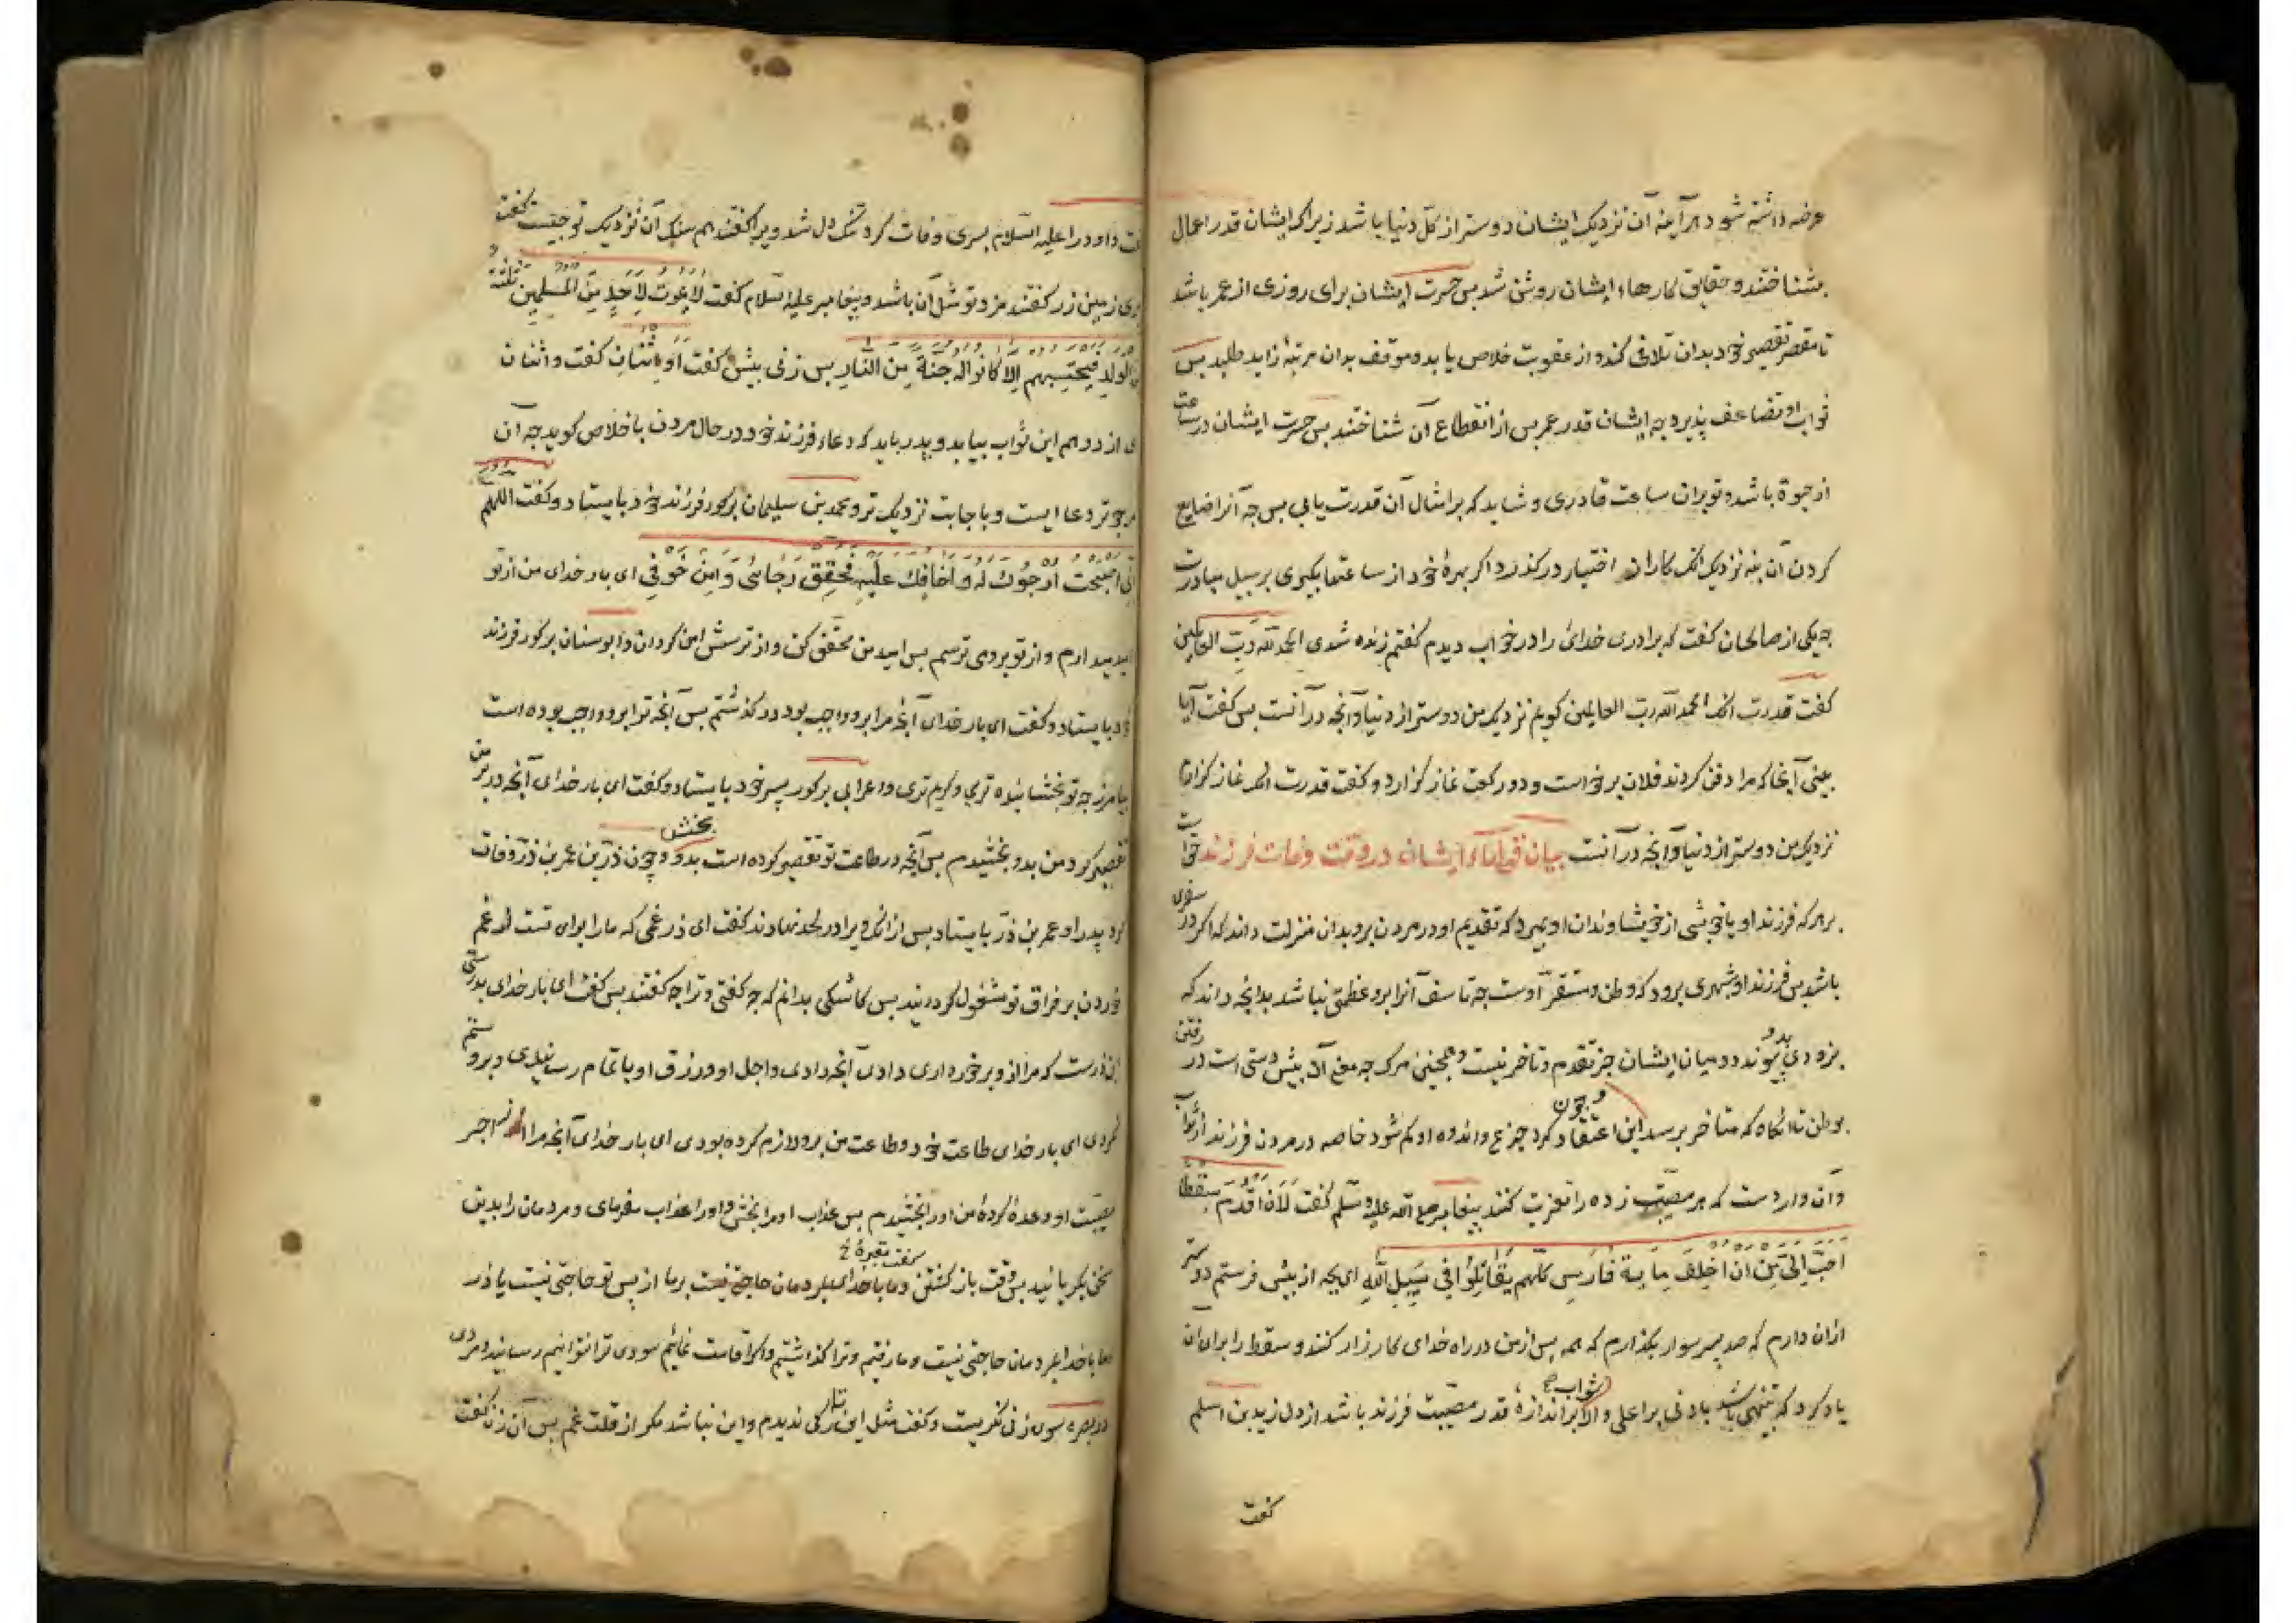 عرضه داشته شود هر آینه آن نزدیک ایشان دوستر از کل دنیا باشد زیرا که ایشان قدر اعمال
بشناختند و حقایق کارهاء ایشان روشن شد بس حسرت ایشان برای روزی از عمر باشد
تا مقصر تقصیر خود بدان تلافی کند و از عقوبت خلاص یابد و موفق بدان مرتبهٔ زاید طلبد بس
ثواب او تضاعف پذیرد چه ایشان قدر عمر بس از انقطاع آن شناختند بس حسرت ایشان در ساعت
از حیوة باشد و تو بران ساعت قادری و شاید که بر امثال آن قدرت یابی بس چه آنرا ضایع
کردن آن بنه نزدیک انک کار از اختیار در گذرد اگر بهرهٔ خود از ساعتها بگیری بر سبیل مبادرت
چه یکی از صالحان گفت که برادری خدائی را در خواب دیدم گفتم زنده شدی الحمد لله رب العالمین
گفت قدرت انک الحمد لله رب العالمین گویم نزدیک من دوستر از دنیا و آنچه در آنست بس گفت آیا
ببینی آنجا که مرا دفن کردند فلان برخواست و دو رکعت نماز گزارد و گفت قدرت انک نماز گزارم
نزدیک من دوستر از دنیا و آنچه در آنست بیان قولهاء ایشان در وقت وفات فرزند خواست
بر هر که فرزند او یا خویشی از خویشاوندان او بمیرد که تقدیم او در مردن برو بدان منزلت داند که اگر در سفری
باشد بس فرزند او بشهری برود که وطن و مستقر اوست چه تاسف آنرا برو عظمتی نباشد بدانچه داند که
بزودی بدو پیوندد و میان ایشان جز تقدم و تاخر نیست و همچنین مرگ چه معنی آن پیش دستی است در رفتن
بوطن تا انگاه که متاخر برسد و چون این اعتقاد کرد جزع و اندوه او کم شود خاصه در مردن فرزند از ثواب
وآن واردست که هر مصیبت زده را تعزیت کنند پیغامبر صلی الله علیه وسلم گفت لَاَن اُقدّم سِقطًا
احبّ الیّ مِن ان اُخلِفَ مایة فارس کلّهم یقاتلوا فی سبیل الله ای بچه از پیش فرستم دوستر
ازان دارم که صد پسر سوار بگذارم که همه پس از من در راه خدای کارزار کنند و سقط را برای آن
یاد کرد که تنبیهی باشد بادنی بر اعلی و الا ثواب بر اندازهٔ قدر مصیبت فرزند باشد از دل زید بن اسلم
گفت
گفت داود را علیه السلام پسری وفات کرد تنگ دل شد ویرا گفتند هم سنگ آن نزدیک تو چیست گفت
پری زمین زر گفتند مزد تو مثل آن باشد و پیغامبر علیه السلام گفت لا یموت لاحد من المسلمین ثلثة
من الولد فیحتسبهم الا کانوا له جنة من النار بس زنی پیشش گفت او اثنان گفت و اثنان
ای از دو هم این ثواب بیابد و پدر باید که دعاء فرزند خود در حال مردن باخلاص گوید چه آن
مرجوتر دعا ایست و باجابت نزدیک تر و محمد بن سیلمان بر گور فرزند خود بایستاد و گفت اللهم
انی اصبحت ارجوک له و اخافک علیه فحقق رجائی و آمن خوفی ای بار خدای من از تو
امید میدارم و از تو بروی ترسم بس امید من محقق کن و از ترسش امن گردان و ابوسنان بر گور فرزند
خود بایستاد و گفت ای بار خدای آنچه مرا برو واجب بود در گذشتم بس آنچه ترا برو واجب بوده است
بیامرز چه تو بخشاینده تری و کریم تری و اعرابی بر گور پسر خود بایستاد و گفت ای بار خدای آنچه در بر من
تقصیر کرد من بدو بخشیدم بس آنچه در طاعت تو تقصیر کرده است بدو بخش و چون ذر بن عمر بن ذر وفات
کرد پدر او عمر بن ذر بایستاد بس از انک ویرا در لحد نهادند گفت ای ذر غمی که ما را برای تست از غم
خوردن بر فراق تو مشغول گردانید بس کاشکی بدانم که چه گفتی و ترا چه گفتند بس گفت ای بار خدای بدرستی
این ذرست که مرا از و برخورداری دادی آنچه دادی و اجل او و رزق او باتمام رسانیدی و برو ستم
نکردی ای بار خدای طاعت خود و طاعت من برو لازم کرده بودی ای بار خدای آنچه مرا از اجر
مصیبت او وعده کردهٔ من او را بخشیدم بس عذاب او مرا بخش و او را عذاب مفرمای و مردمان را بدین
سخن بگریانید بس وقت بازگشتن گفت و ما با خدای بمردمان حاجت نیست بر ما از پس تو حاجتی نیست یا ذر
و ما با خدا بمردمان حاجتی نیست و ما رفتیم و ترا گذاشتیم و اگر اقامت نمائیم سودی ترا نتوانیم رسانید و مردی
در بصره سوی زنی نگریست و گفت مثل این تازگی ندیدم و این نباشد مگر از قلت غم بس آن زن گفت